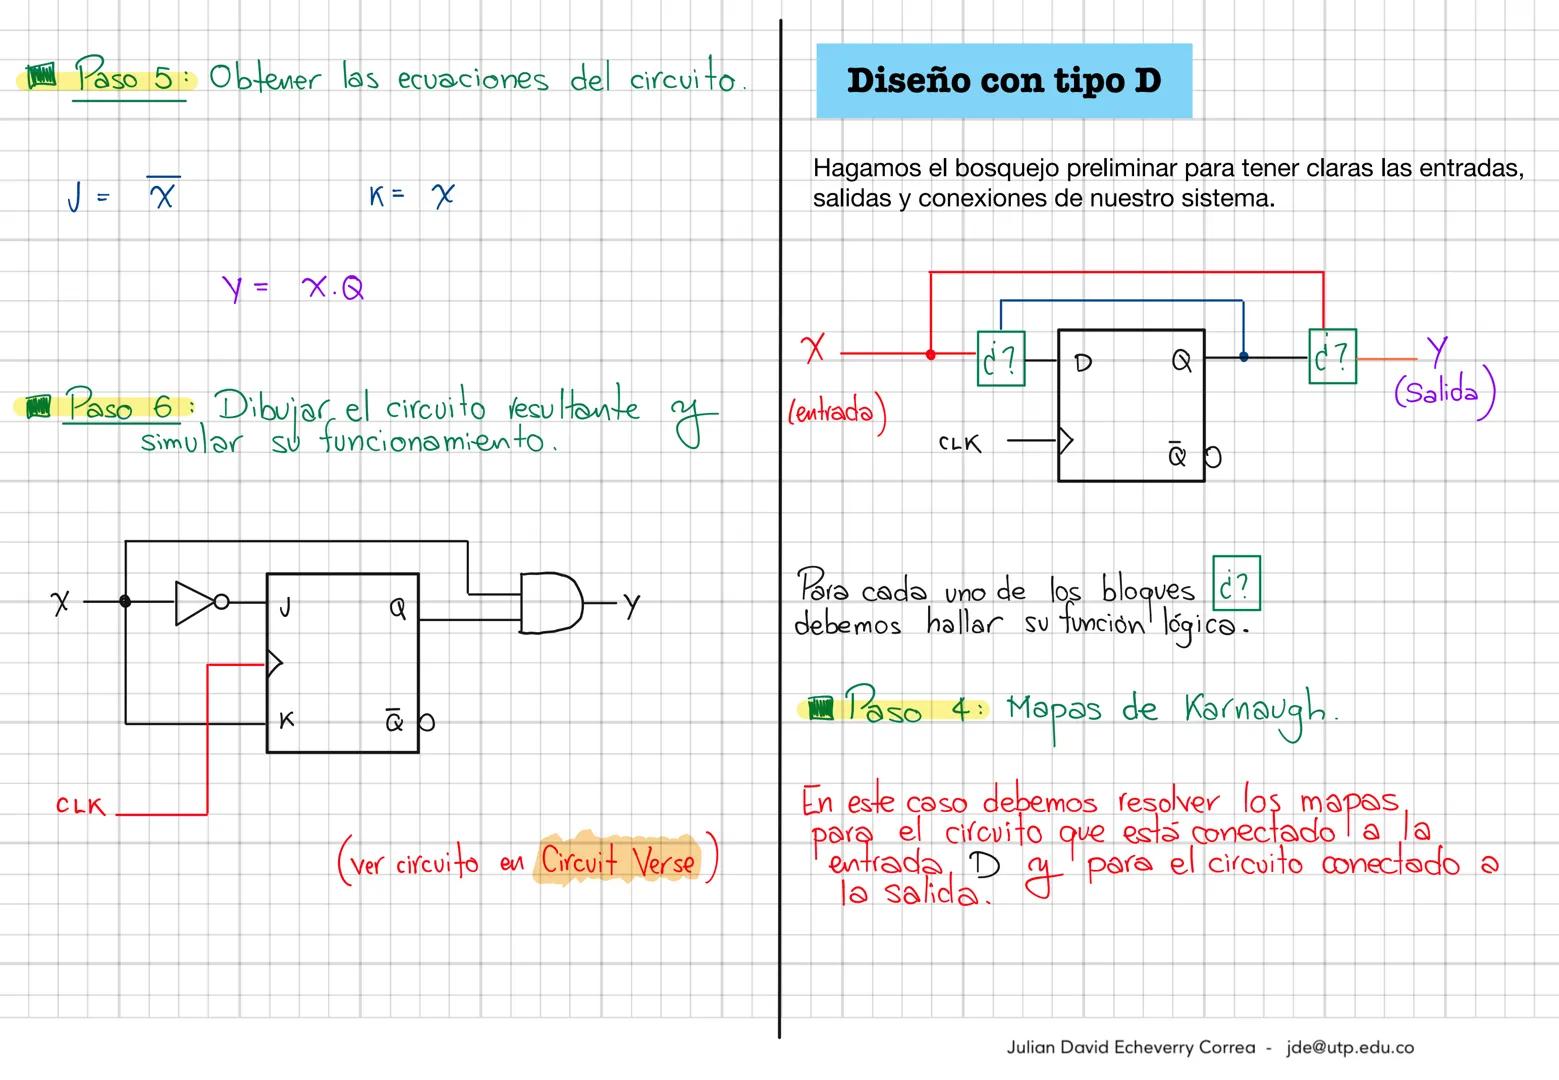 Paso 5: Obtener las ecuaciones del circuito.
J = X̅
K = X
Y = X.Q
Paso 6: Dibujar el circuito resultante y
simular su funcionamiento.
X
J
Q
Y
K
Q̅
CLK
(ver circuito en Circuit Verse)
Diseño con tipo D
Hagamos el bosquejo preliminar para tener claras las entradas,
salidas y conexiones de nuestro sistema.
X
(entrada)
¿?
D
Q
¿?
Y
(Salida)
CLK
Q̅
Para cada uno de los bloques ¿?
debemos hallar su función lógica.
Paso 4: Mapas de Karnaugh.
En este caso debemos resolver los mapas
para el circuito que está conectado a la
entrada D y para el circuito conectado a
la salida.
Julian David Echeverry Correa - jde@utp.edu.co